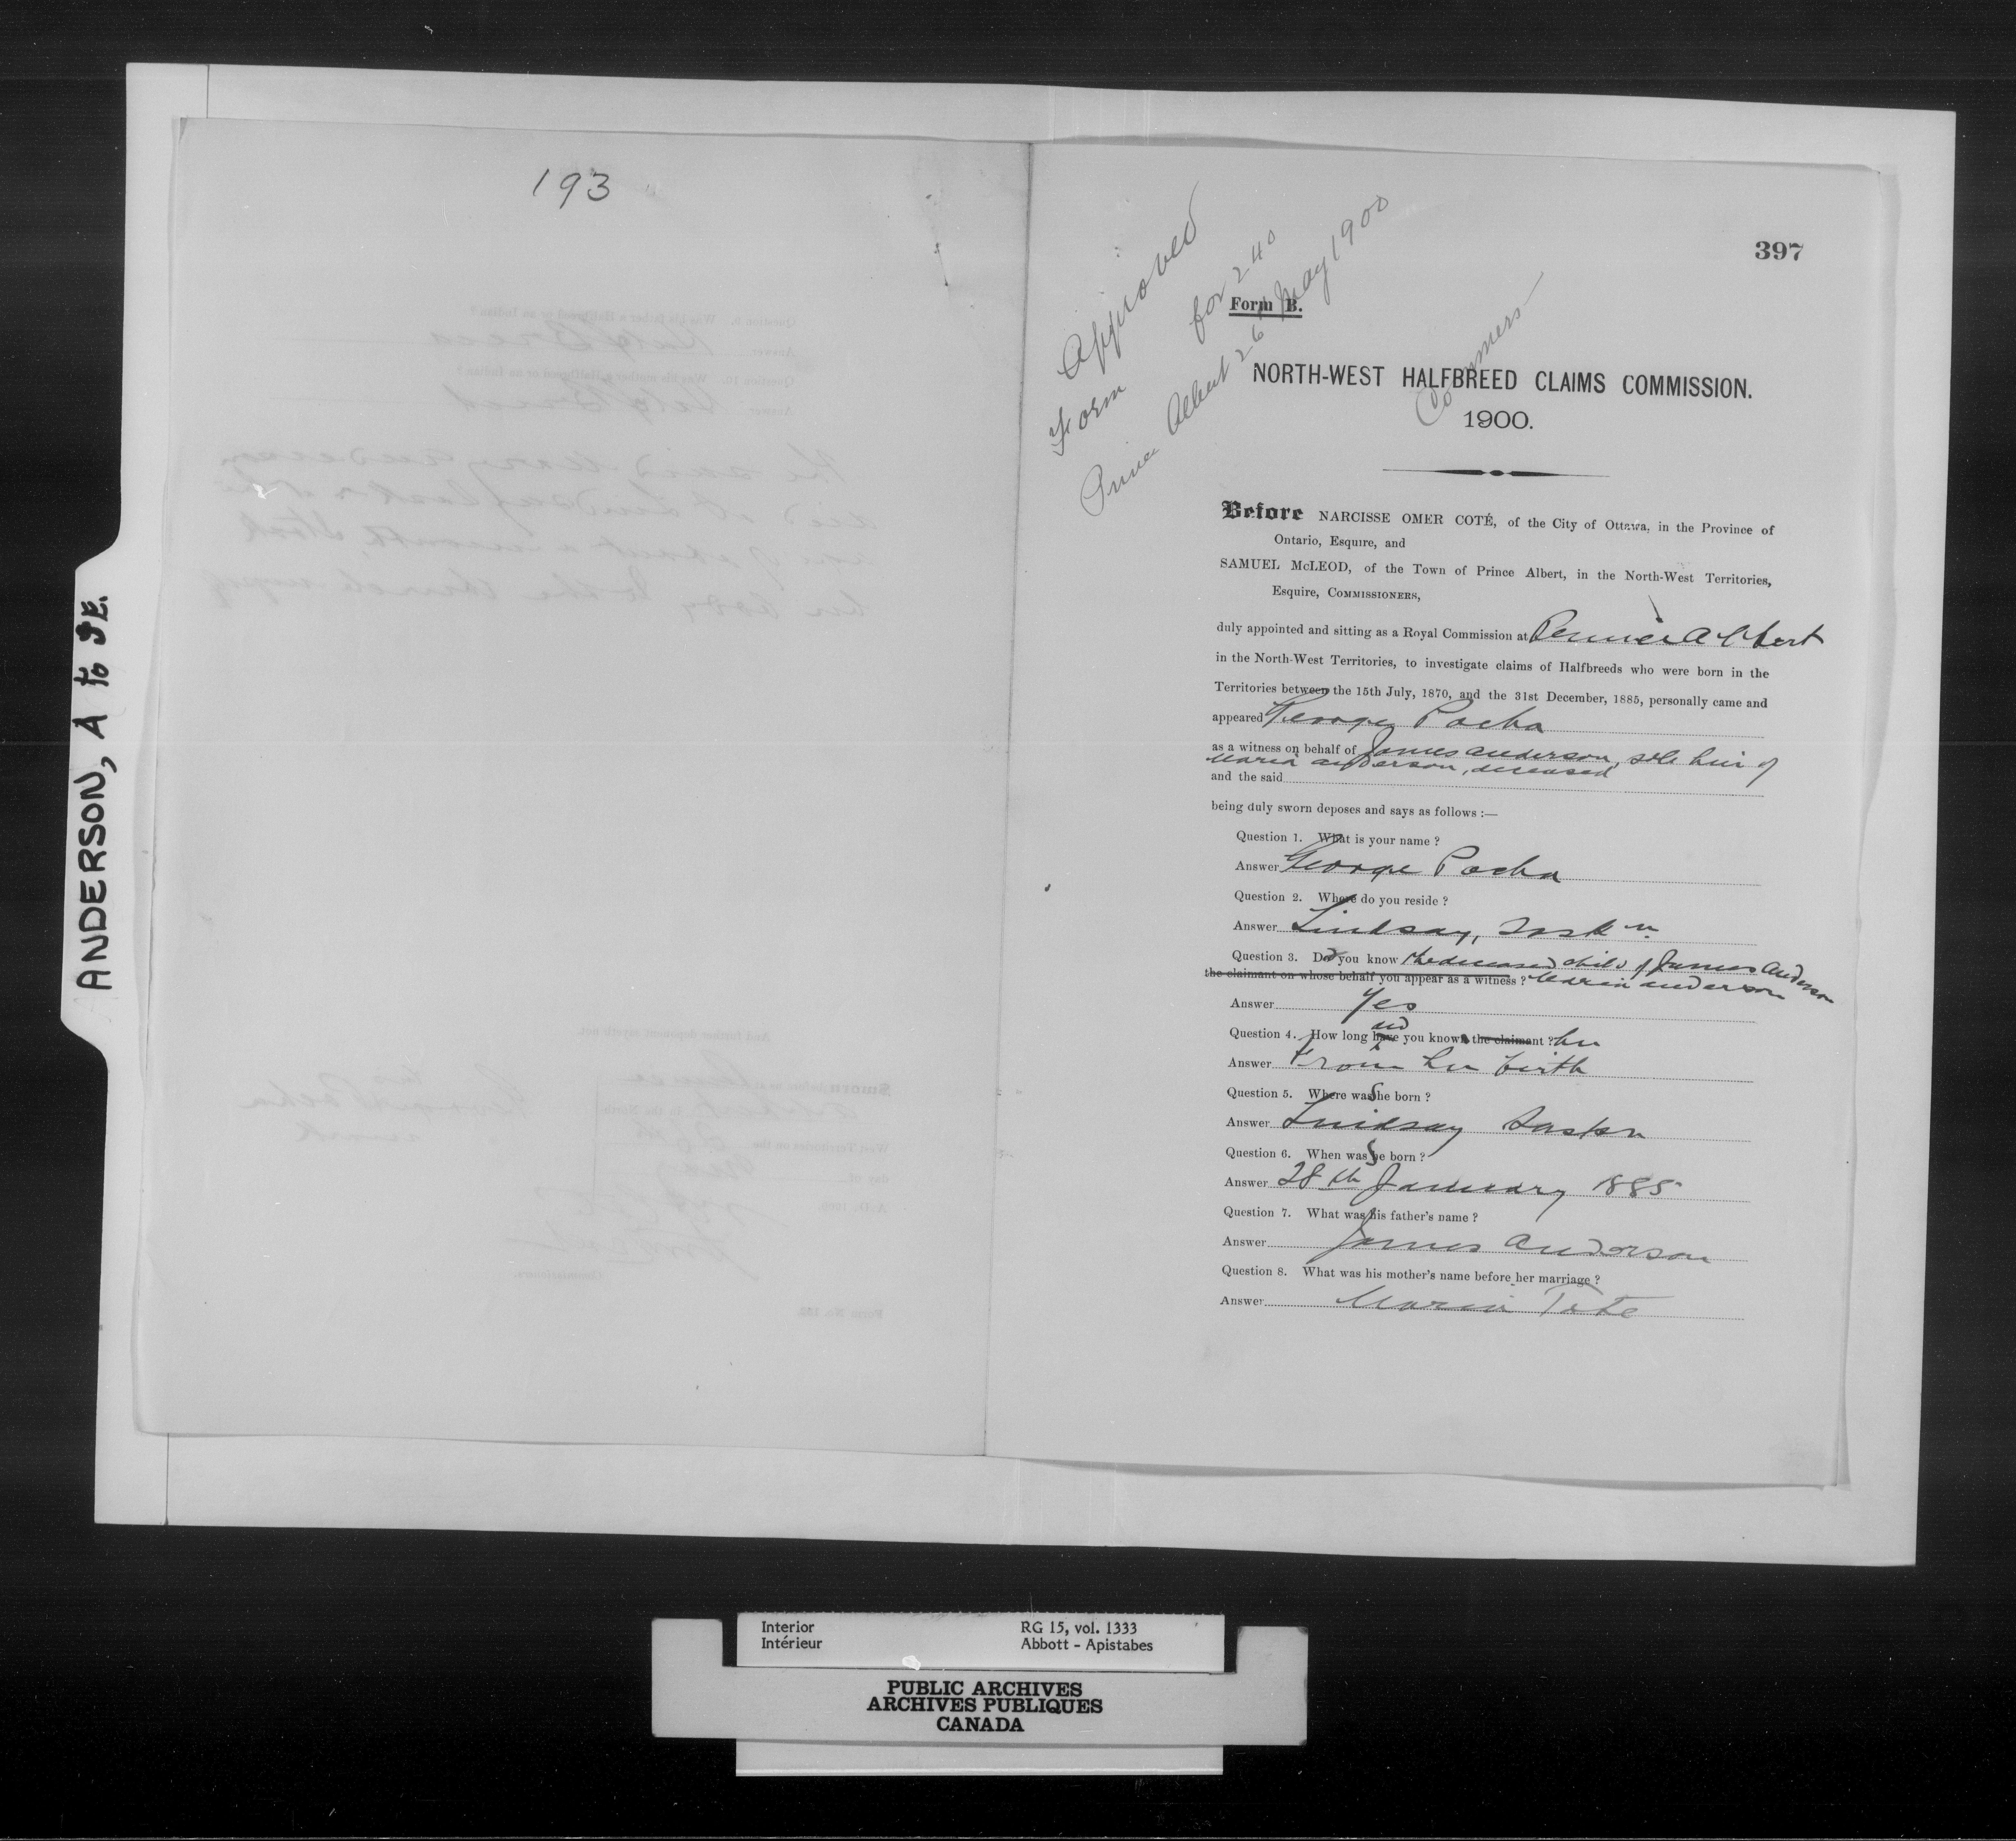 193
ANDERSON, A to JE.
397
Approved
Form for 240
Prince Albert 26th May 1900
Commers
Form B.
NORTH-WEST HALFBREED CLAIMS COMMISSION.
1900.
Before NARCISSE OMER COTÉ, of the City of Ottawa, in the Province of
Ontario, Esquire, and
SAMUEL McLEOD, of the Town of Prince Albert, in the North-West Territories,
Esquire, COMMISSIONERS,
duly appointed and sitting as a Royal Commission at Prince Albert
in the North-West Territories, to investigate claims of Halfbreeds who were born in the
Territories between the 15th July, 1870, and the 31st December, 1885, personally came and
appeared George Pocha
as a witness on behalf of James Anderson, sole heir of
Maria Anderson, deceased
and the said
being duly sworn deposes and says as follows :—
Question 1. What is your name ?
Answer George Pocha
Question 2. Where do you reside ?
Answer Lindsay, Sask n.
Question 3. Did you know the deceased child of James Anderson
the claimant on whose behalf you appear as a witness ? Maria Anderson
Answer Yes
Question 4. How long have did you know the claimant ? her
Answer From her birth
Question 5. Where was She born ?
Answer Lindsay Saskn
Question 6. When was She born ?
Answer 28th January 1885
Question 7. What was his father's name ?
Answer James Anderson
Question 8. What was his mother's name before her marriage ?
Answer Maria Tate
Interior RG 15, vol. 1333
Intérieur Abbott - Apistabes
PUBLIC ARCHIVES
ARCHIVES PUBLIQUES
CANADA